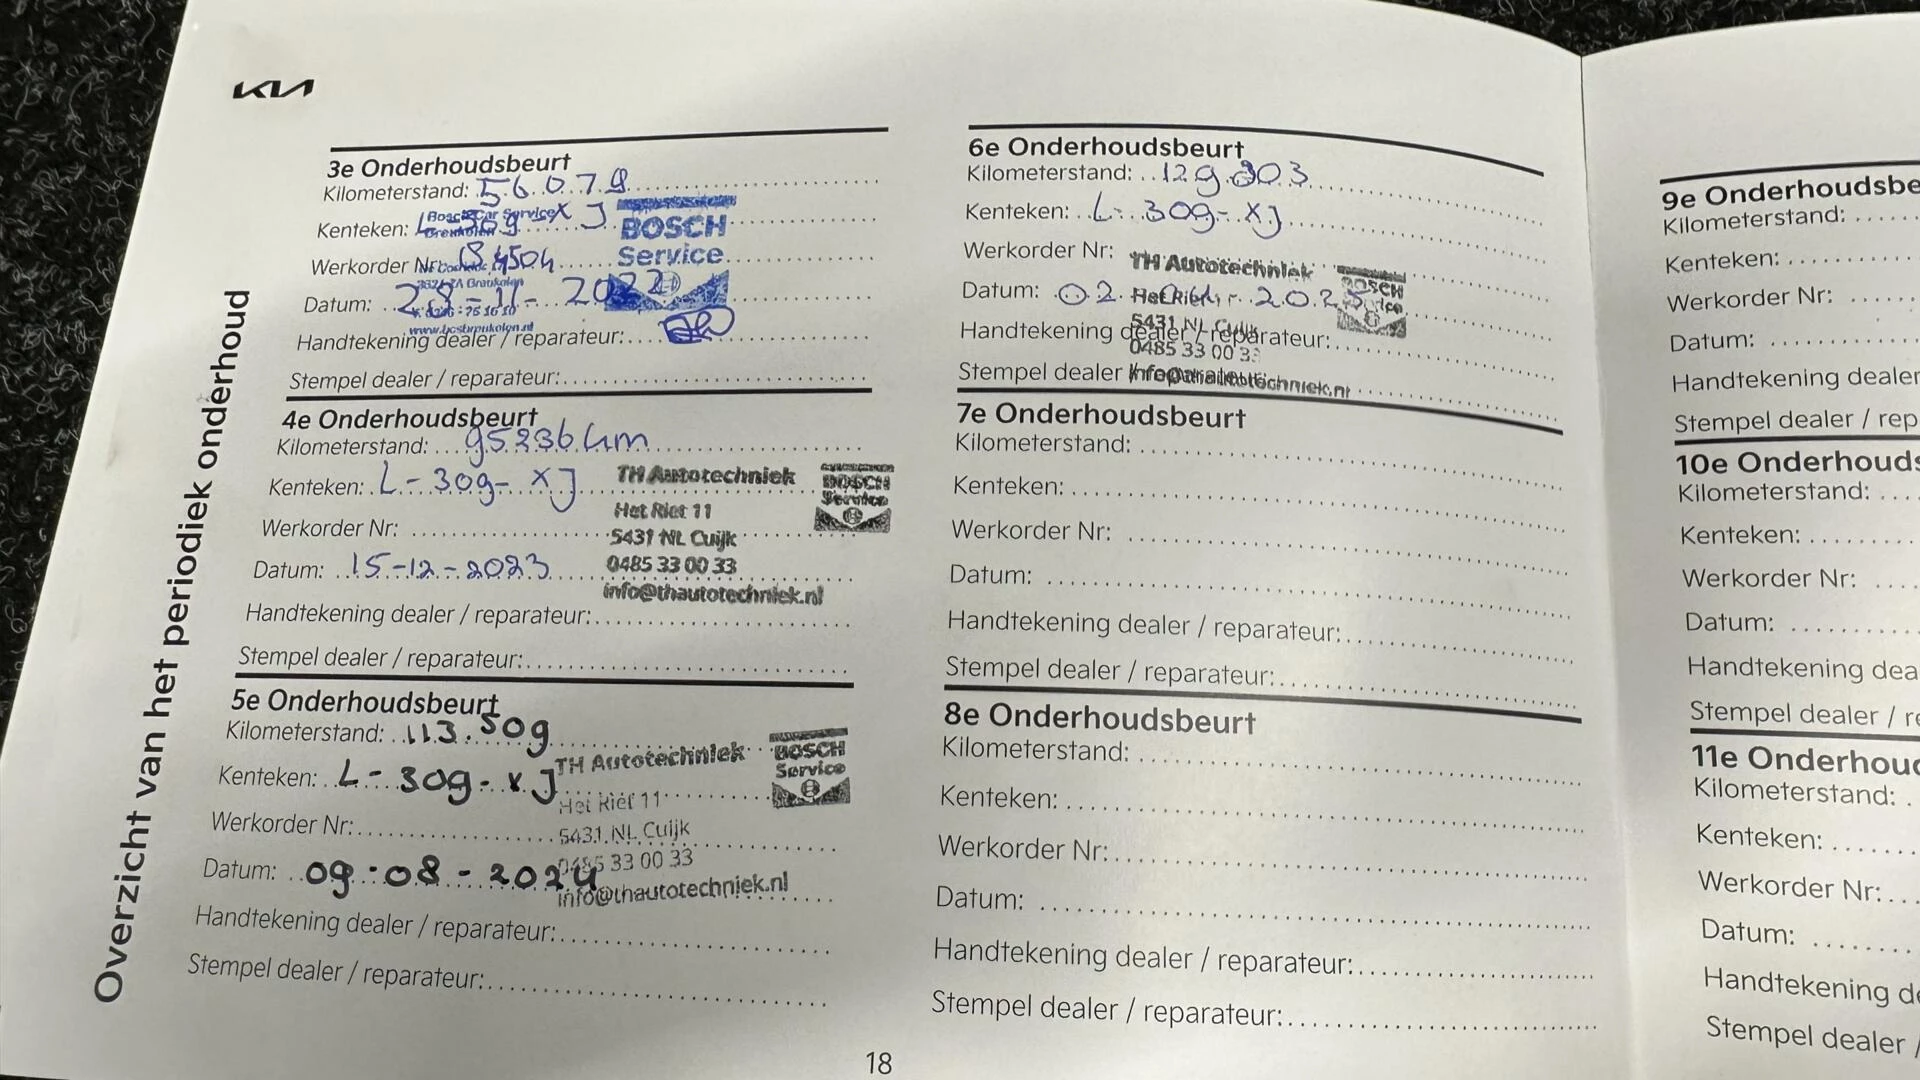 KIA
Overzicht van het periodiek onderhoud
3e Onderhoudsbeurt
Kilometerstand: 56.079
Kenteken: L-30g-XJ
Bosch Car Service
Breukelen
BOSCH
Service
Werkorder Nr:
Datum: 28-11-2022
Handtekening dealer / reparateur:
Stempel dealer / reparateur:
4e Onderhoudsbeurt
Kilometerstand: 95236 km
Kenteken: L-30g-XJ
Werkorder Nr:
Datum: 15-12-2023
Handtekening dealer / reparateur:
Stempel dealer / reparateur:
TH Autotechniek
Het Riet 11
5431 NL Cuijk
0485 33 00 33
info@thautotechniek.nl
BOSCH
Service
5e Onderhoudsbeurt
Kilometerstand: 113.50g
Kenteken: L-30g-XJ
Werkorder Nr:
Datum: 09-08-2024
Handtekening dealer / reparateur:
Stempel dealer / reparateur:
TH Autotechniek
Het Riet 11
5431 NL Cuijk
0485 33 00 33
info@thautotechniek.nl
BOSCH
Service
6e Onderhoudsbeurt
Kilometerstand: 129.303
Kenteken: L-30g-XJ
Werkorder Nr:
Datum: 02 2025
Handtekening dealer / reparateur:
Stempel dealer / reparateur:
TH Autotechniek
Het Riet
5431 NL Cuijk
0485 33 00 33
BOSCH
Service
7e Onderhoudsbeurt
Kilometerstand:
Kenteken:
Werkorder Nr:
Datum:
Handtekening dealer / reparateur:
Stempel dealer / reparateur:
8e Onderhoudsbeurt
Kilometerstand:
Kenteken:
Werkorder Nr:
Datum:
Handtekening dealer / reparateur:
Stempel dealer / reparateur:
18
9e Onderhoudsbe
Kilometerstand:
Kenteken:
Werkorder Nr:
Datum:
Handtekening dealer
Stempel dealer / rep
10e Onderhouds
Kilometerstand:
Kenteken:
Werkorder Nr:
Datum:
Handtekening dea
Stempel dealer / re
11e Onderhoud
Kilometerstand:
Kenteken:
Werkorder Nr:
Datum:
Handtekening de
Stempel dealer /